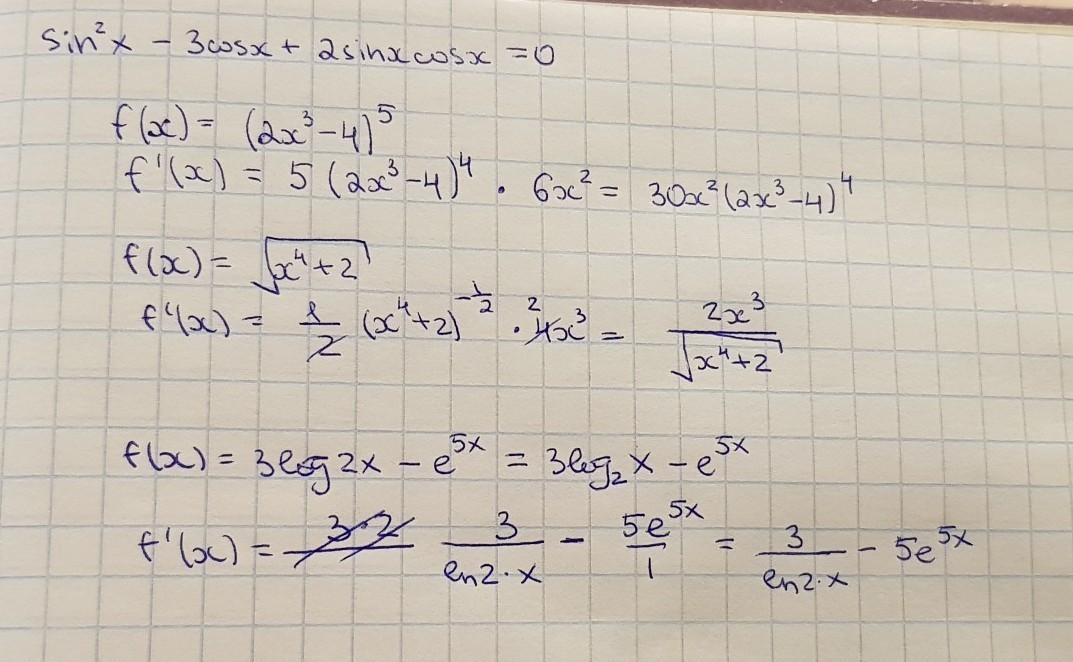 sin²x - 3cosx + 2sinxcosx = 0
f(x) = (2x³-4)⁵
f'(x) = 5 (2x³-4)⁴ · 6x² = 30x²(2x³-4)⁴
f(x) = √(x⁴+2)
f'(x) = 1/2 (x⁴+2)^(-1/2) · ²4x³ = 2x³/√(x⁴+2)
f(x) = 3log2x - e^(5x) = 3log₂x - e^(5x)
f'(x) = 3·2 3/(ln2·x) - 5e^(5x)/1 = 3/(ln2·x) - 5e^(5x)